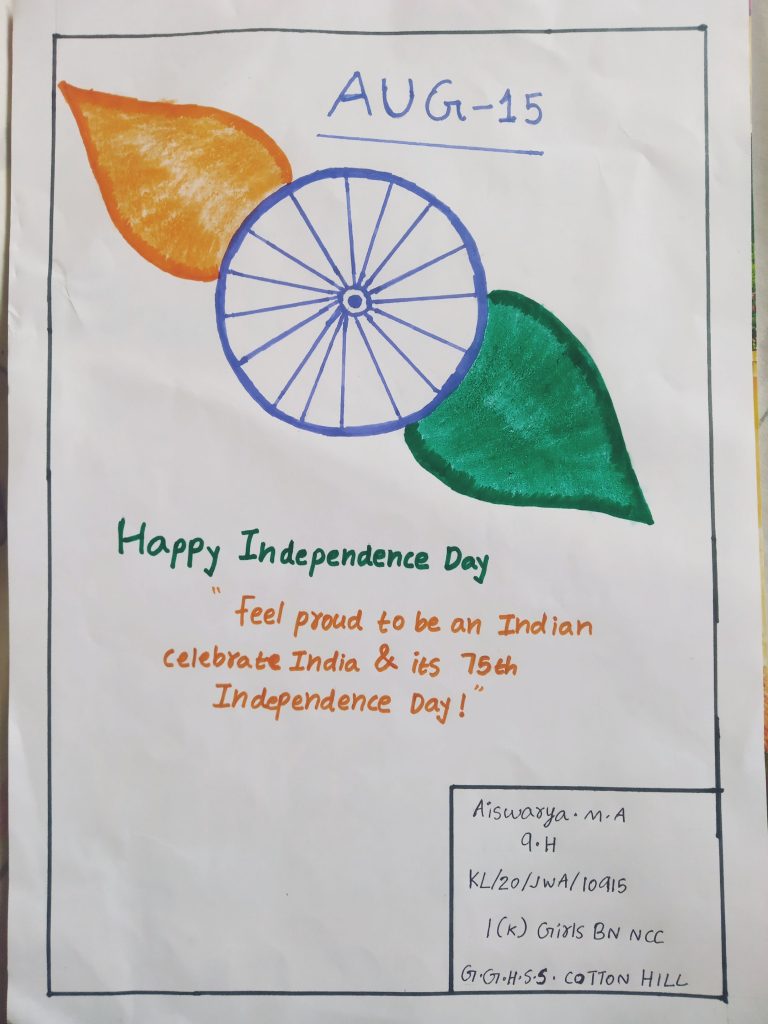 AUG-15
Happy Independence Day
" Feel proud to be an Indian
celebrate India & its 75th
Independence Day!"
Aiswarya. M. A
9. H
KL/20/JWA/10915
1(K) Girls BN NCC
G.G.H.S.S. COTTON HILL